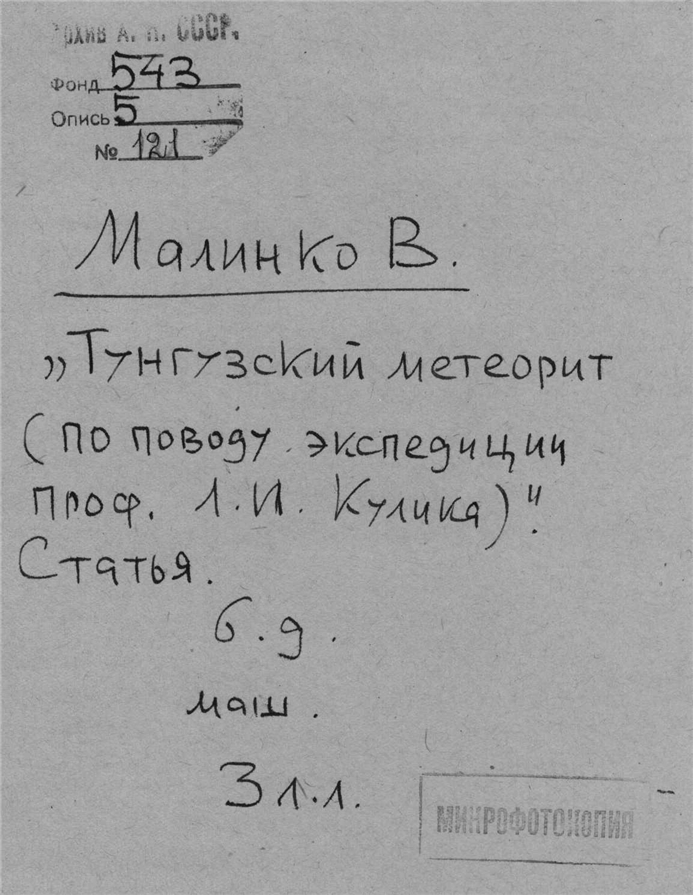 Архив А. Н. СССР.
Фонд 543
Опись 5
№ 121
Малинко В.
„Тунгузский метеорит
(по поводу экспедиции
проф. Л.И. Кулика)".
Статья.
б.д.
маш.
3 л.л.
МИКРОФОТОКОПИЯ